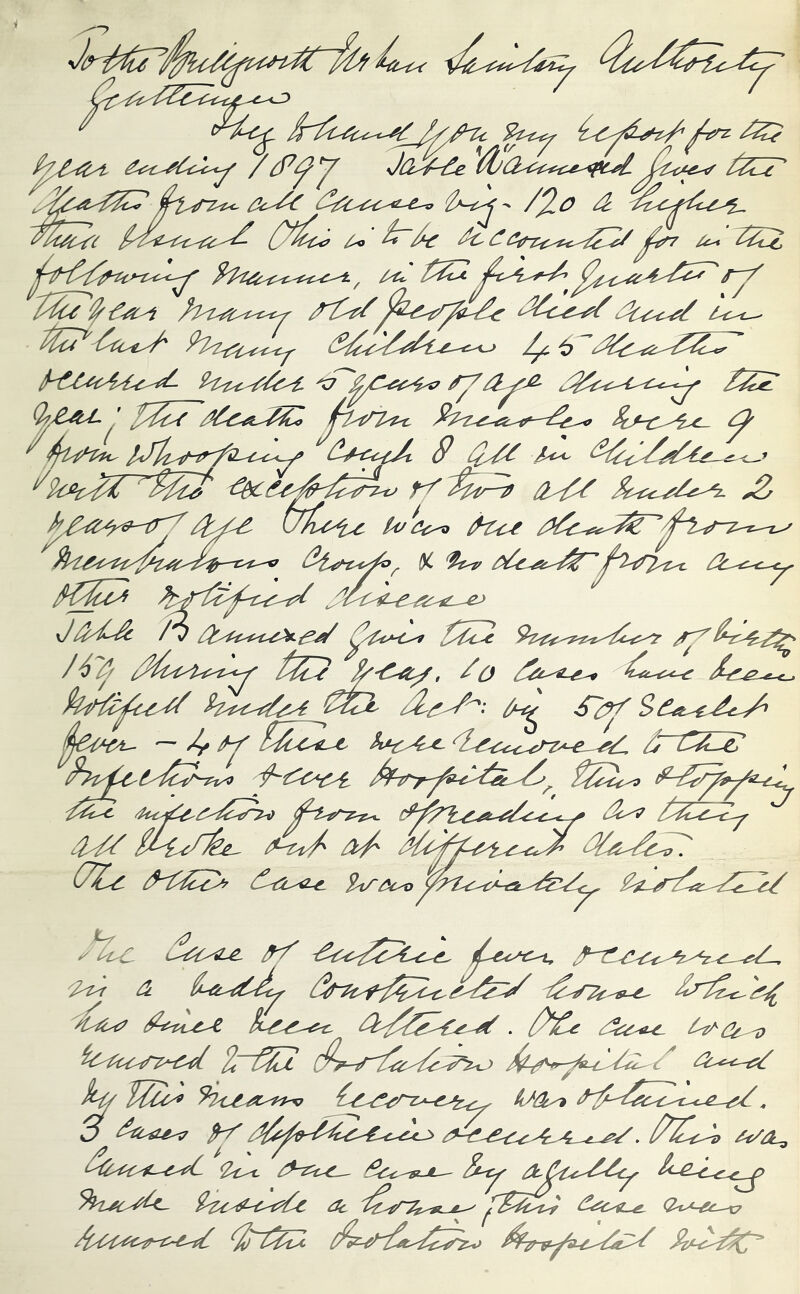 To the Bridgnorth Urban Sanitary Authority
Gentlemen
I beg to hand you my report for the
year ending 1897 Table "A" annexed gives the
deaths from all causes viz - 120 a higher
than usual This is to be accounted for in the
following manner, in the first quarter of
the year many old people died and in
the last many children 45 deaths
occurred under 5 years of age during the
year; the deaths from measles were 9
from whooping cough 8 all in children
with the exception of two all under 2
years of age There was one death from
membranous croup, & no death from any
other notified disease
Table B annexed gives the number of births
159 during the year. 10 cases have been
notified under the Act: viz 5 of Scarlet
fever - 4 of these were removed to the
Infectious fever Hospital, thus stopping
the infection from spreading as they
all broke out at different dates.
The other case was privately isolated
The case of enteric fever occurred
in a badly constructed house which
has since been altered. The case was
removed to the Isolation Hospital and
by this means recovery was obtained.
3 cases of diptheria occurred. This was
caused in one case by a gully being
made inside a house; this case was
removed to the Isolation Hospital with